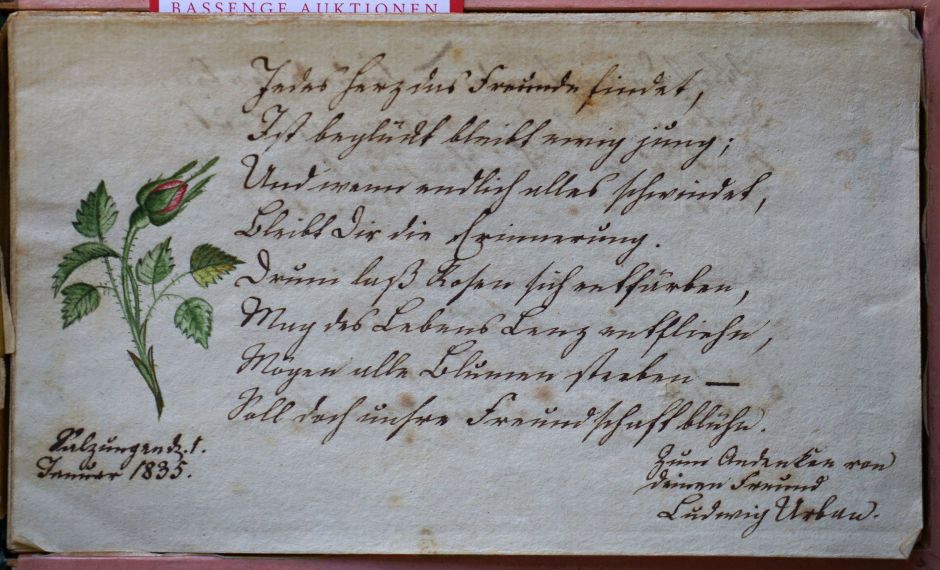 BASSENGE AUKTIONEN
Jedes Herz das Freunde findet,
Ist beglückt bleibt ewig jung;
Und wenn endlich alles schwindet,
Bleibt Dir die Erinnerung.
Drum laß Rosen sich entfärben,
Mag des Lebens Lenz entfliehn,
Mögen alle Blumen sterben —
Soll doch unsre Freundschaft blühn.
Salzungen d. 1.
Januar 1835.
Zum Andenken von
deinen Freund
Ludwig Urban.